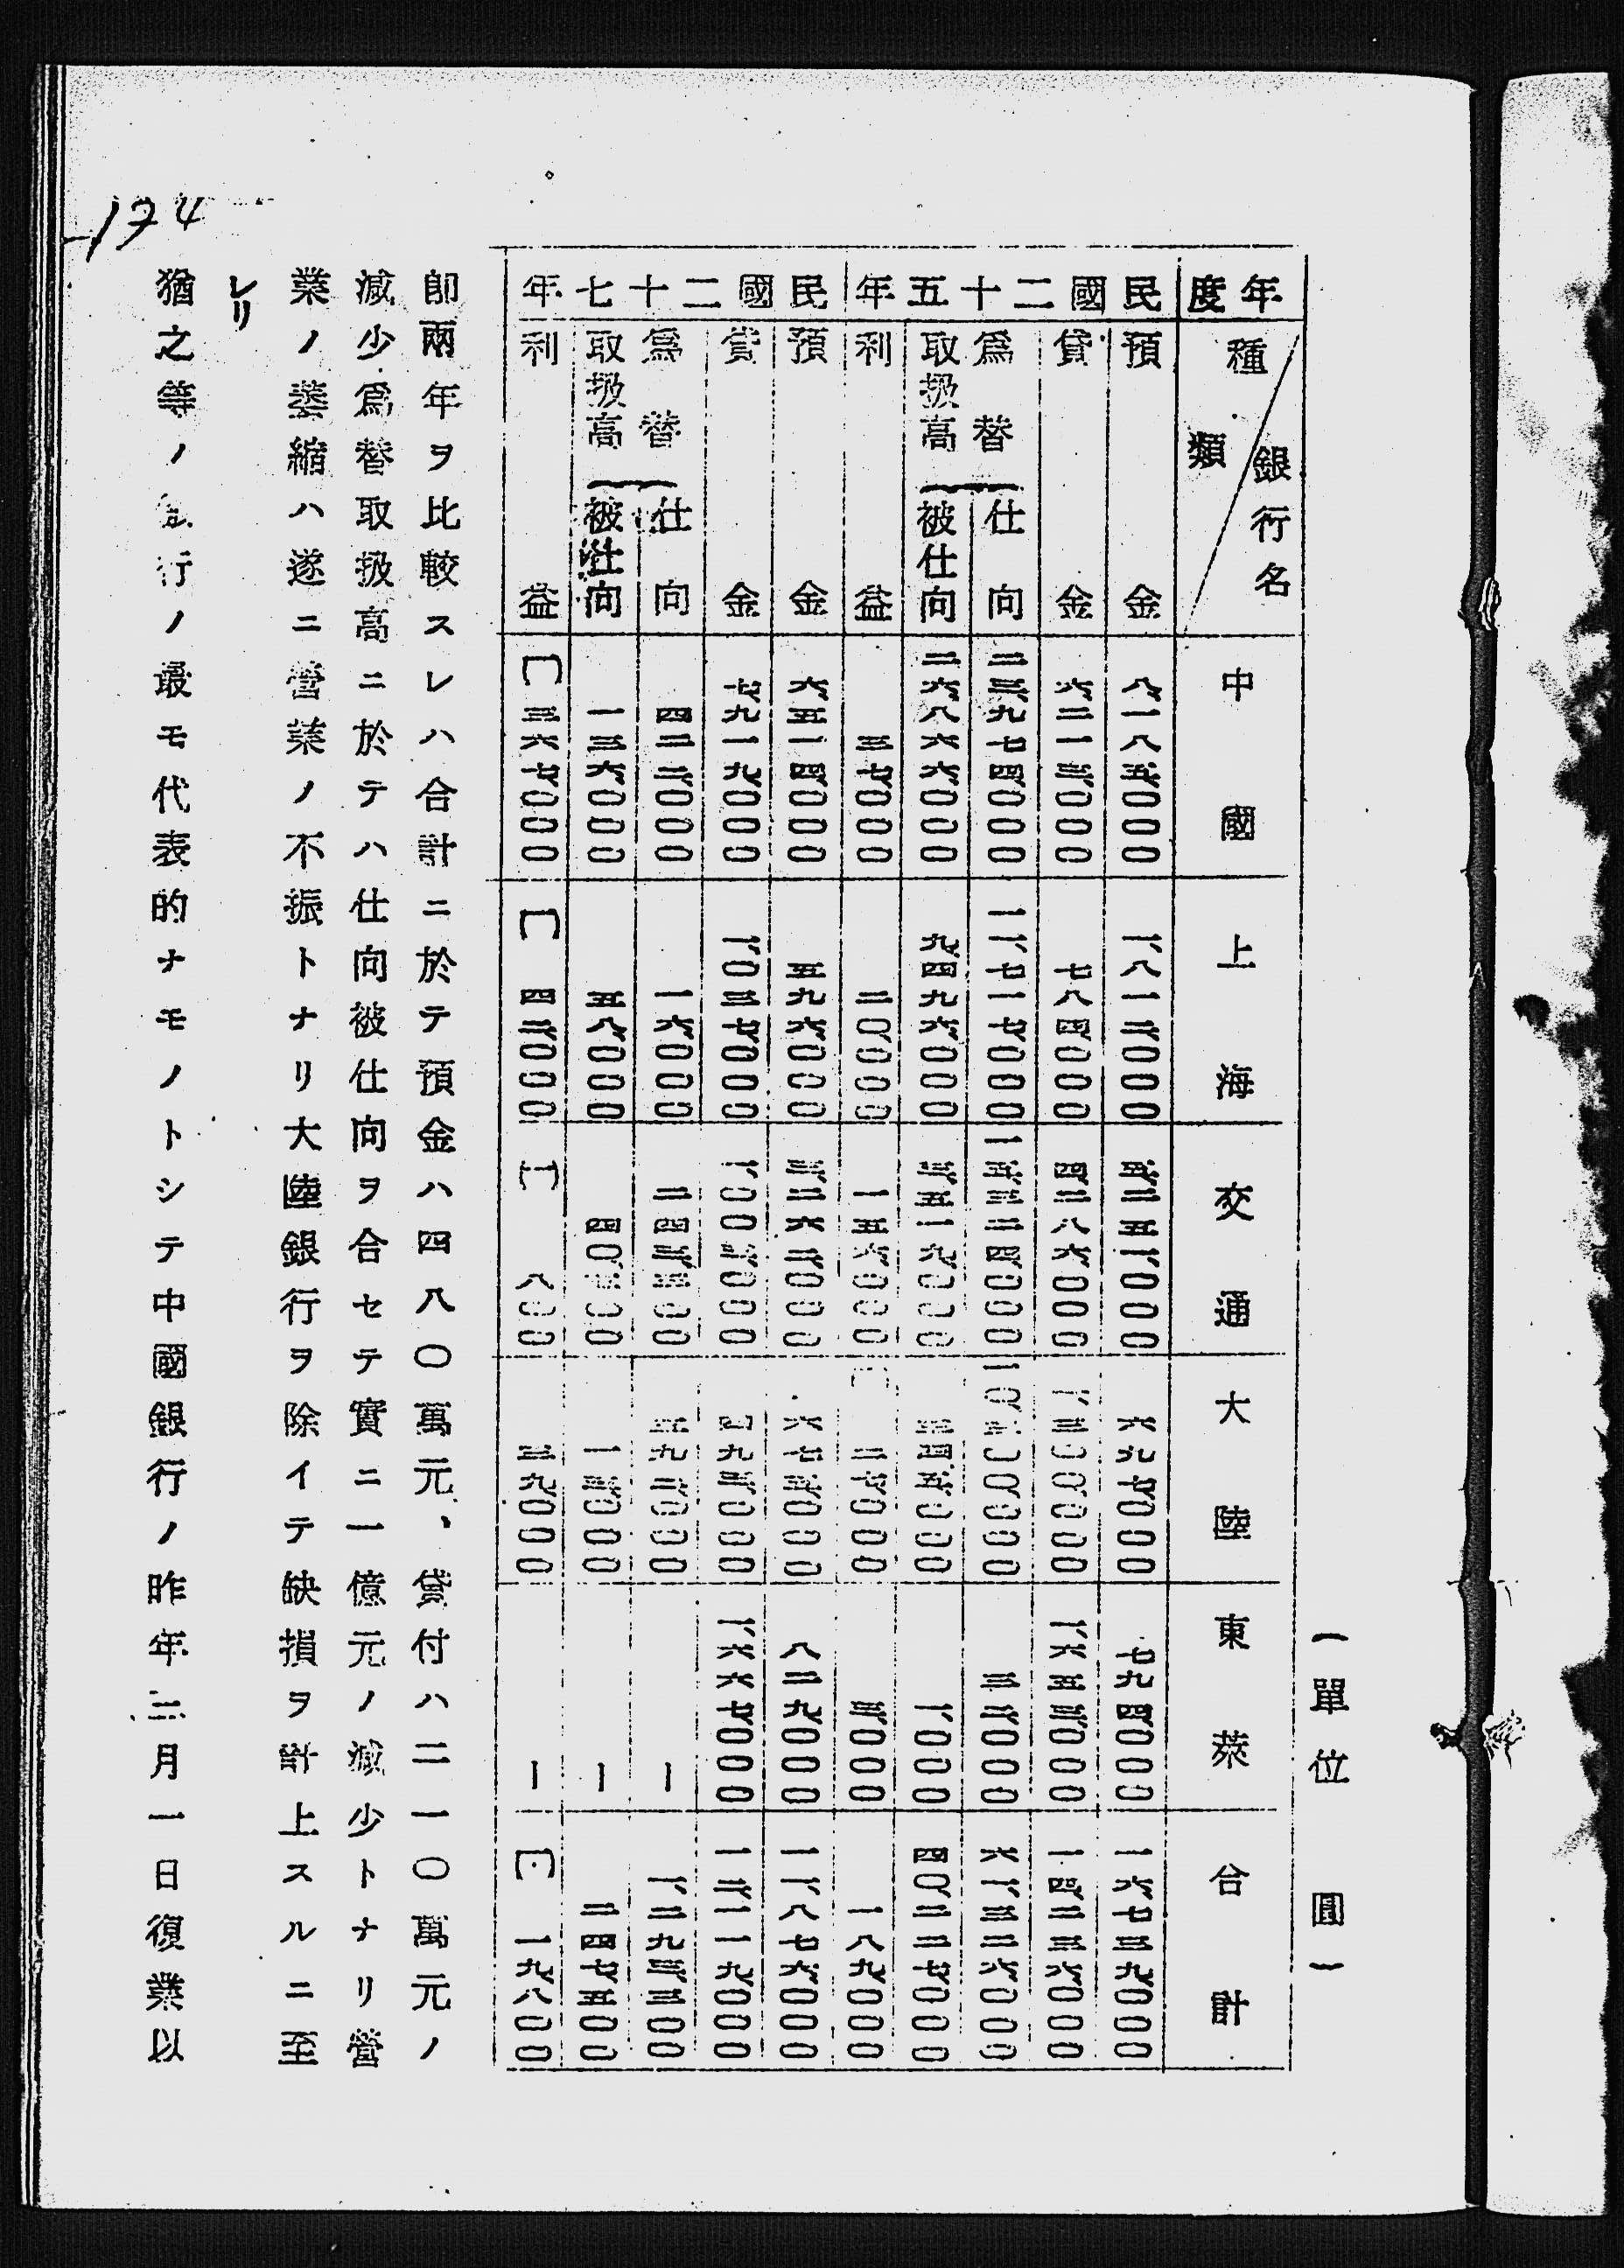 (單位　圓)
年度　種類　銀行名　中國　上海　交通　大陸　東萊　合計
民國二十五年　預金　八、一八五、〇〇〇　一、八一二、〇〇〇　五、二五一、〇〇〇　六九七、〇〇〇　七九四、〇〇〇　一六、七三九、〇〇〇
貸金　六、二一三、〇〇〇　七八四、〇〇〇　四、二八六、〇〇〇　一、三〇〇、〇〇〇　一、六五三、〇〇〇　一四、二三六、〇〇〇
爲替取扱高　仕向　二三、九七四、〇〇〇　一一、七一七、〇〇〇　一五、三二四、〇〇〇　三二、〇〇〇　六一、三二六、〇〇〇
被仕向　二六、八六六、〇〇〇　九、四九六、〇〇〇　三、五一九、〇〇〇　三四五、〇〇〇　一、〇〇〇　四〇、二二七、〇〇〇
利益　三七、〇〇〇　二〇、〇〇〇　一五六、〇〇〇　(一)二七、〇〇〇　三、〇〇〇　一八九、〇〇〇
民國二十七年　預金　六、五一四、〇〇〇　五九六、〇〇〇　三、二六二、〇〇〇　六七五、〇〇〇　八二九、〇〇〇　一一、八七六、〇〇〇
貸金　七、九一九、〇〇〇　一、〇三七、〇〇〇　一、〇〇三、〇〇〇　四九三、〇〇〇　一、六六七、〇〇〇　一二、一一九、〇〇〇
爲替取扱高　仕向　四二二、〇〇〇　一六、〇〇〇　二四三、三〇〇　五九二、〇〇〇　ー　一、二九三、三〇〇
被仕向　一三六、〇〇〇　五八、〇〇〇　四〇、五〇〇　一三、〇〇〇　ー　二四七、五〇〇
利益　(一)三六七、〇〇〇　(一)四二、〇〇〇　(一)八〇〇　三九、〇〇〇　ー　(一)一九、八〇〇
卽兩年ヲ比較スレハ合計ニ於テ預金ハ四八〇萬元、貸付ハ二一〇萬元ノ
減少爲替取扱高ニ於テハ仕向被仕向ヲ合セテ實ニ一億元ノ減少トナリ營
業ノ萎縮ハ遂ニ營業ノ不振トナリ大陸銀行ヲ除イテ缺損ヲ計上スルニ至
レリ
猶之等ノ銀行ノ最モ代表的ナモノトシテ中國銀行ノ昨年二月一日復業以
174